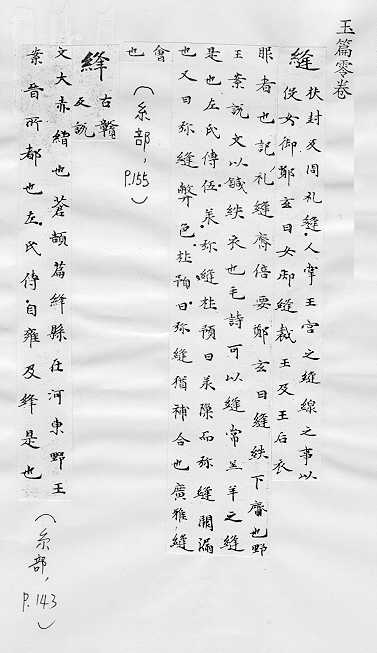 玉篇零卷
縫 扶封反周礼縫人掌王宮之縫線之事以
役女御鄭玄曰女御縫裁王及王后衣
服者也記礼縫齊倍要鄭玄曰縫紩下齊也野
王案說文以鍼紩衣也毛詩可以縫裳羔羊之縫
是也左氏傳伍羕弥縫杜預曰羕隟而弥縫闕漏
也又曰弥縫弊邑杜預曰弥縫猶補合也廣雅縫
會
也
(糸部, P.155)
絳 古贛
反說
文大赤繒也蒼頡篇絳縣在河東野王
案晉所都也左氏傳自雍及絳是也
(糸部, P.143)